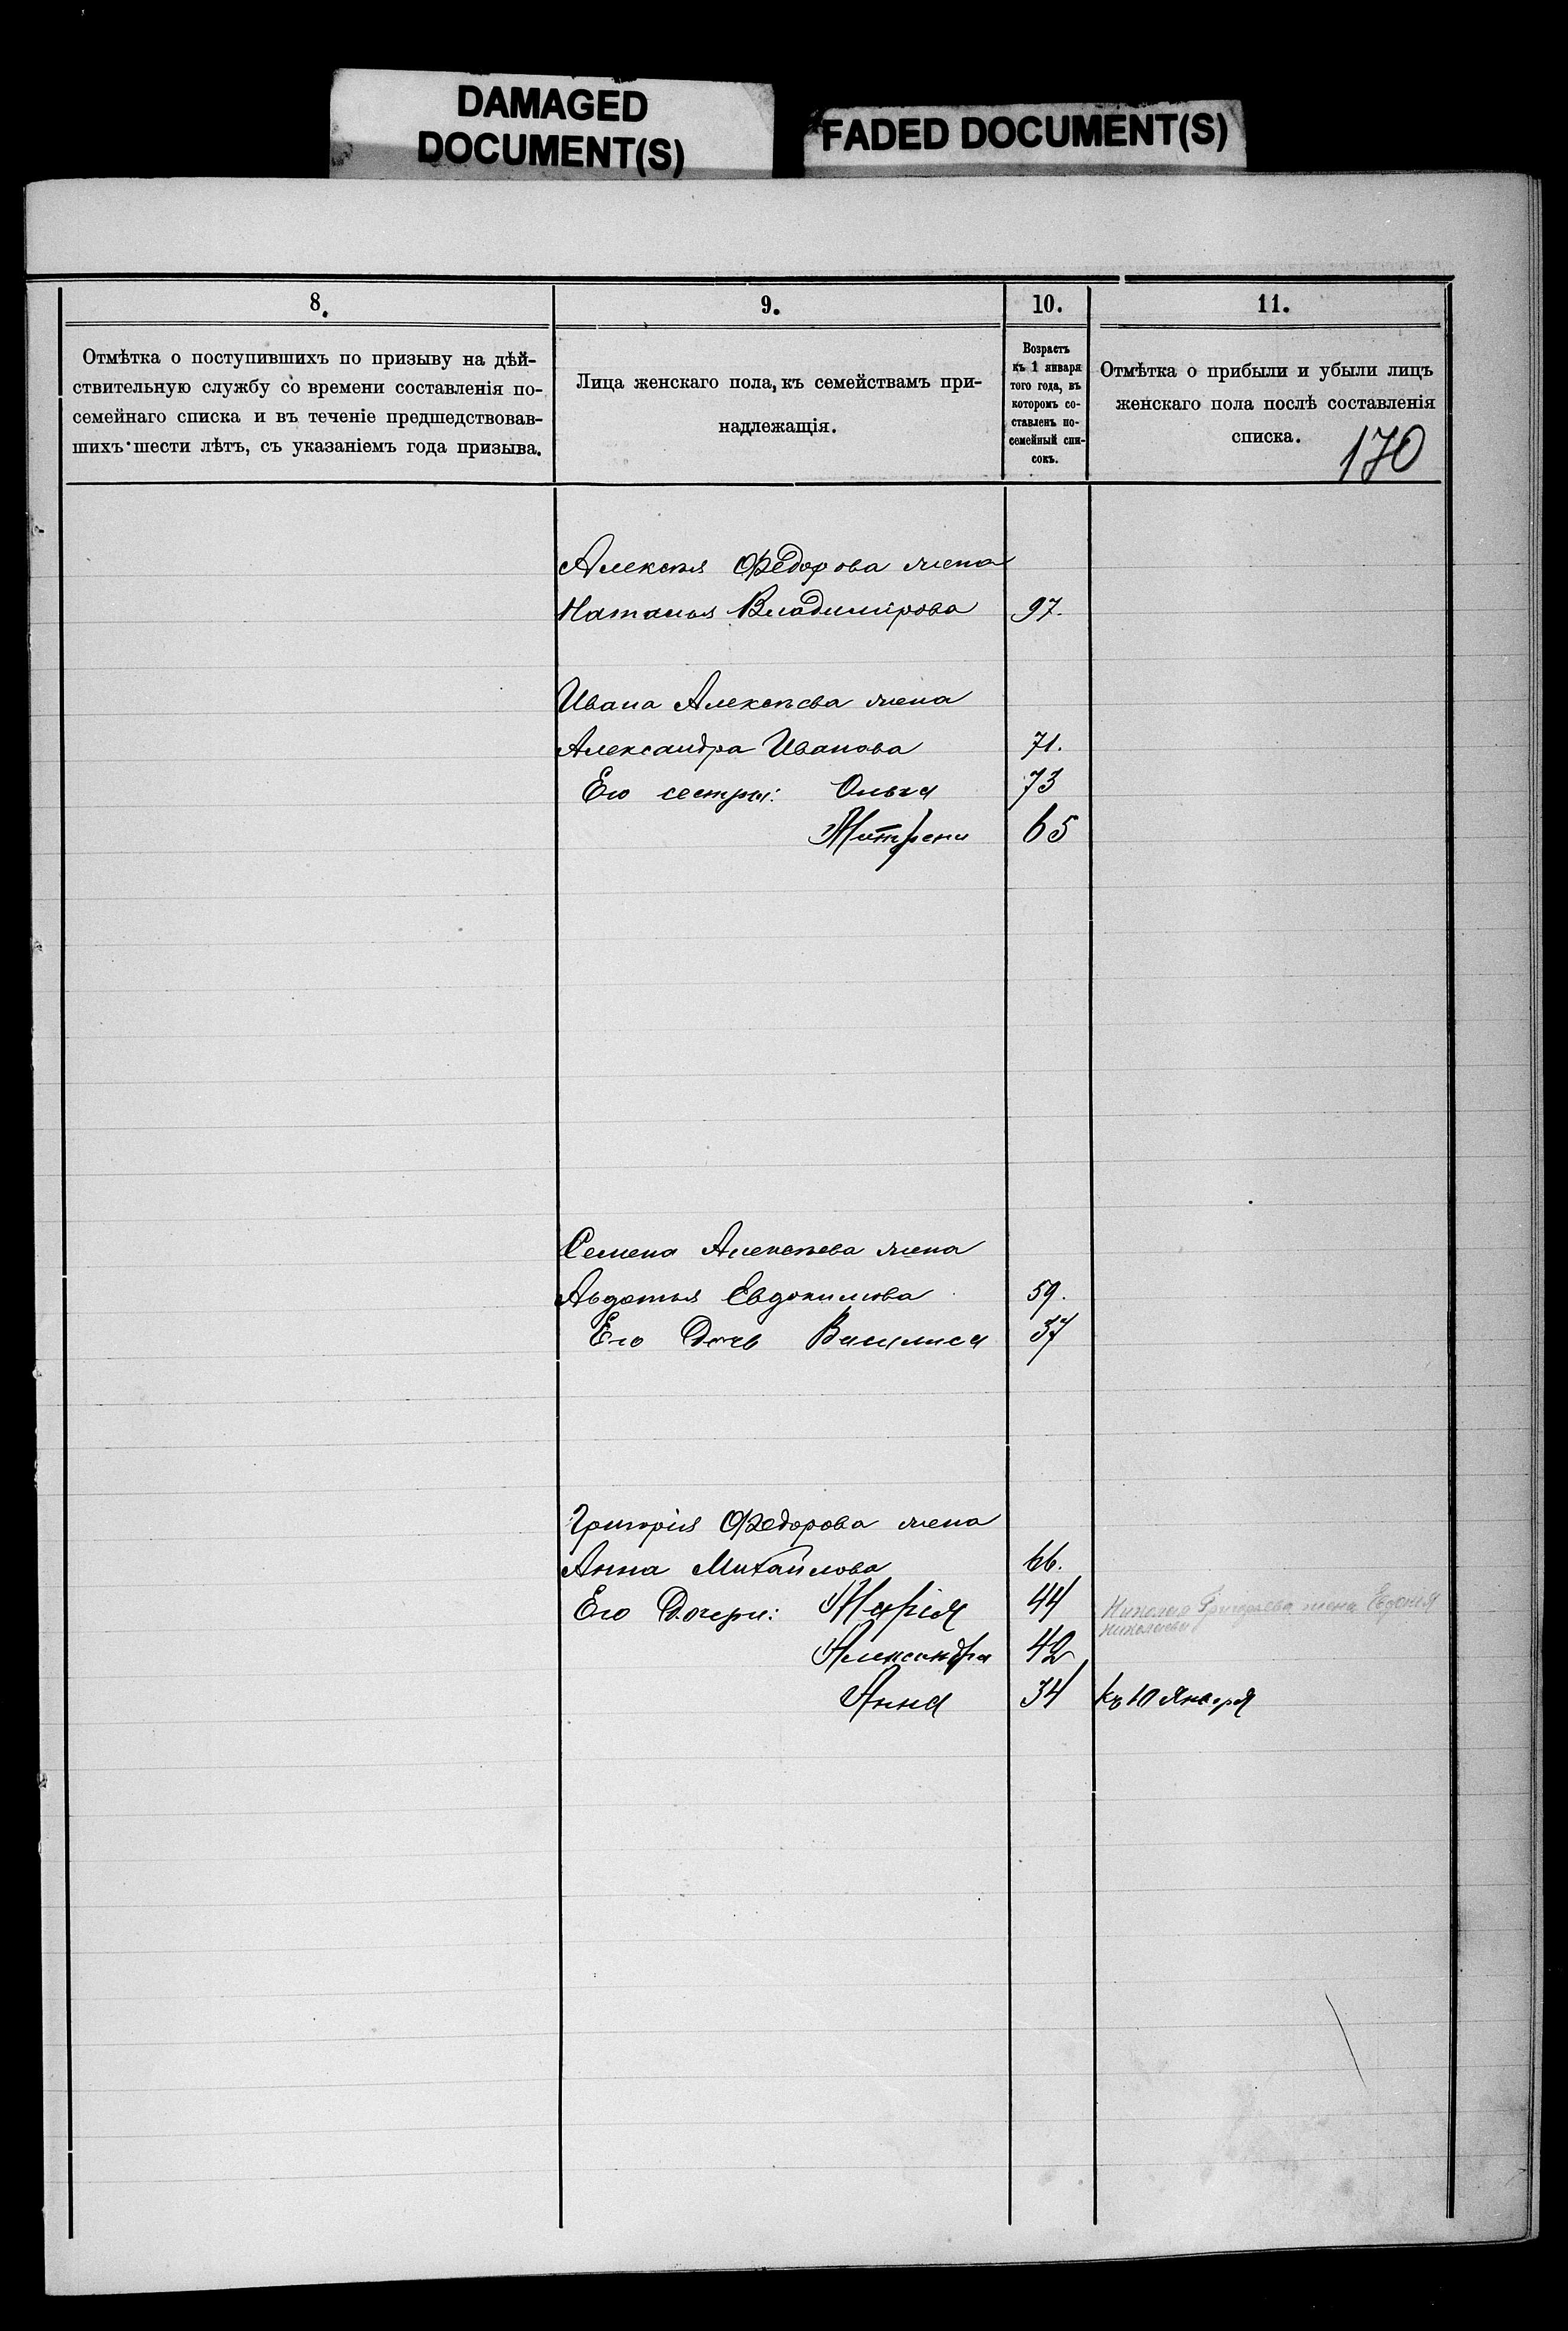 DAMAGED
DOCUMENT(S)
FADED DOCUMENT(S)
8.
Отмѣтка о поступившихъ по призыву на дѣй-
ствительную службу со времени составленія по-
семейнаго списка и въ теченіе предшедствовав-
шихъ шести лѣтъ, съ указаніемъ года призыва.
9.
Лица женскаго пола, къ семействамъ при-
надлежащія.
10.
Возрастъ
къ 1 января
того года, въ
которомъ со-
ставленъ по-
семейный спи-
сокъ.
11.
Отмѣтка о прибыли и убыли лицъ
женскаго пола послѣ составленія
списка.
170
Алексѣя Федорова жена
Наталья Владимірова 97.
Ивана Алексѣева жена
Александра Иванова 71.
Его сестры: Ольга 73
Матрена 65
Семена Алексѣева жена
Авдотья Евдокимова 59.
Его Дочь Василиса 37
Григорія Федорова жена
Анна Михайлова 66.
Его Дочери: Марія 44
Николая Григорьева жена Евдокія
Николаева
Александра 42
Анна 34 къ 10 Января